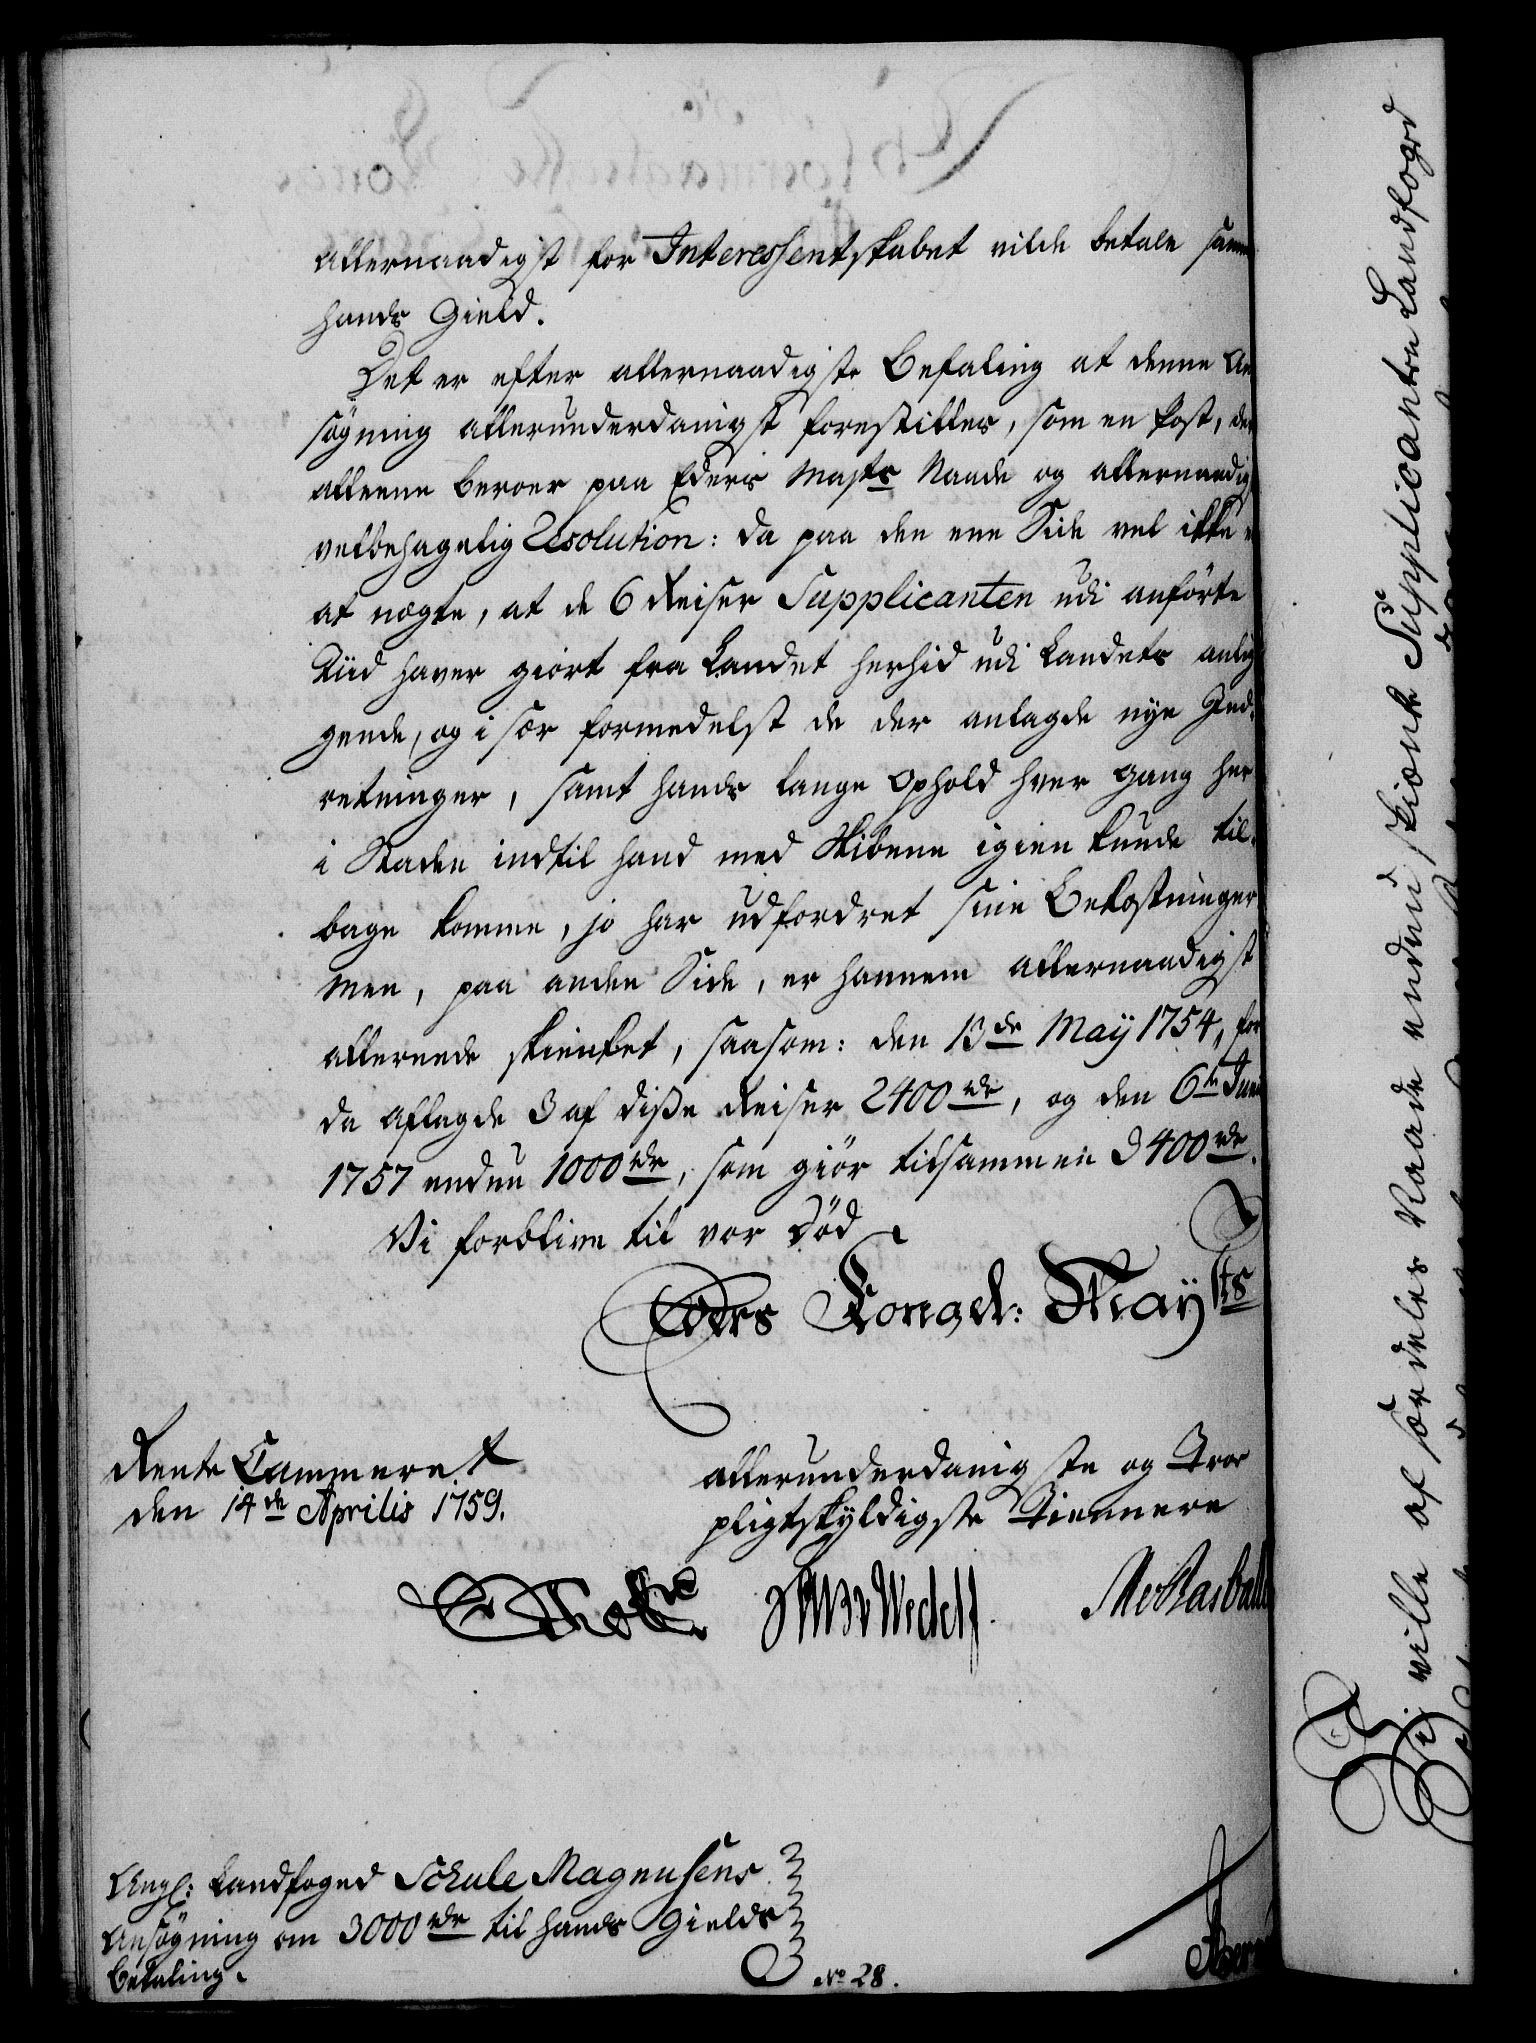 allernaadigst for Interessentskabet vilde betale samme
hands Gield.
Det er efter allernaadigste Befaling at denne An
søgning allerunderdanigst forestilles, som en Post, der
alleene beroer paa Eders Maysts Naade og allernaadigst
velbehagelig Resolution: da paa den eene Side vel ikke er
at nægte, at de 6 Reiser Supplicanten udi anförte
Tiid haver giort fra Landet herhid udi Landets anlig
gende, og i sær formedelst de der anlagde nye Ind-
retninger, samt hands lange Ophold hver gang her
i Staden indtil hand med Skibene igien kunde til-
bage komme, jo har udfordret sine Bekostninger
Men, paa anden Side, er hannem allernaadigst
allerede skienket, saasom: den 13de May 1754, for
da aflagde 3 af disse Reiser 2400 rdr, og den 6te Junii
1757 endnu 1000 rdr, som giör tilsammen 3400 rdr.
Vi forblive til vor Död
Eders Kongel: Maysts
Rente Cammeret
den 14de Aprilis 1759.
allerunderdanigste og Troe
pligtskyldigste Tiennere
Wedell
No 28.
Ang: Landfoged Schule Magnusens
Ansøgning om 3000 rdr til hands Gields
betaling.
Vi ville af særdeles Naade endnu skienke Supplicanten Landfoged